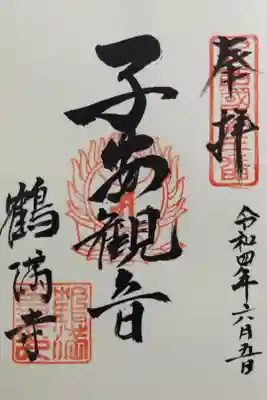 奉拝
令和四年六月五日
子安観音
鶴満寺